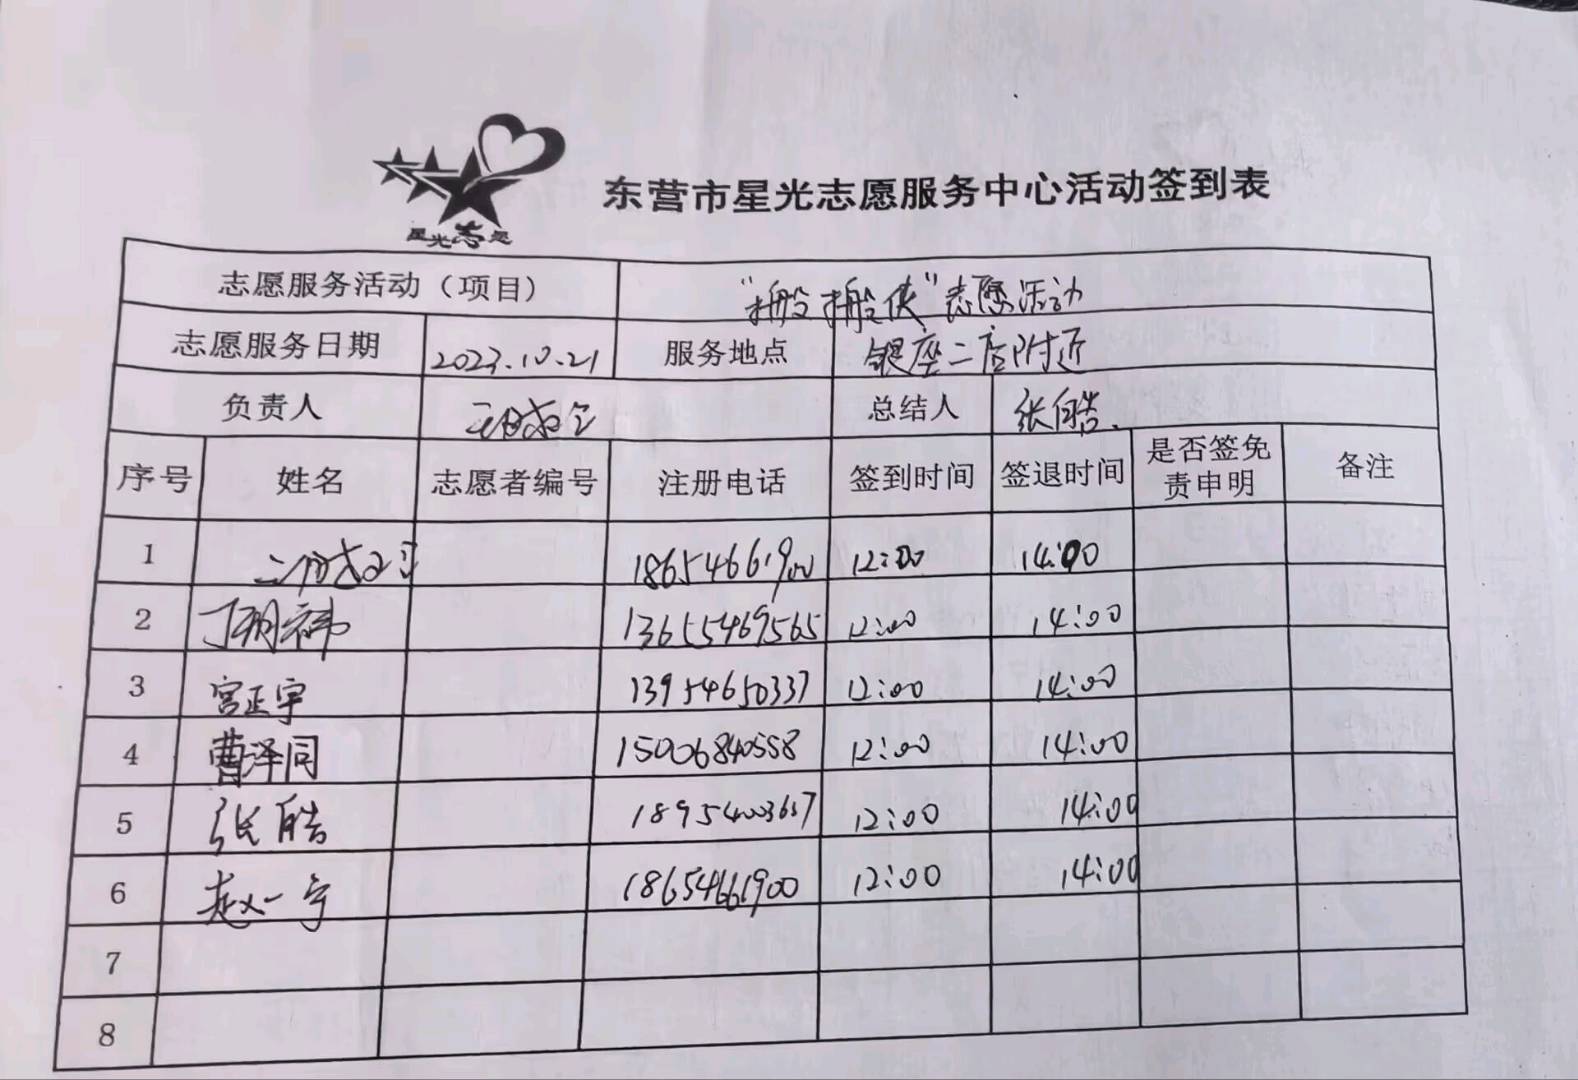 星光志愿
东营市星光志愿服务中心活动签到表
志愿服务活动（项目） “搬搬侠”志愿活动
志愿服务日期 2023.10.21 服务地点 银座二店附近
负责人 总结人 张皓.
序号 姓名 志愿者编号 注册电话 签到时间 签退时间 是否签免责申明 备注
1 18654661900 12:00 14:00
2 丁明祎 13655469565 12:00 14:00
3 宫正宇 13954650337 12:00 14:00
4 曹泽同 15006840558 12:00 14:00
5 张皓 18954003657 12:00 14:00
6 赵一宁 18654661900 12:00 14:00
7
8